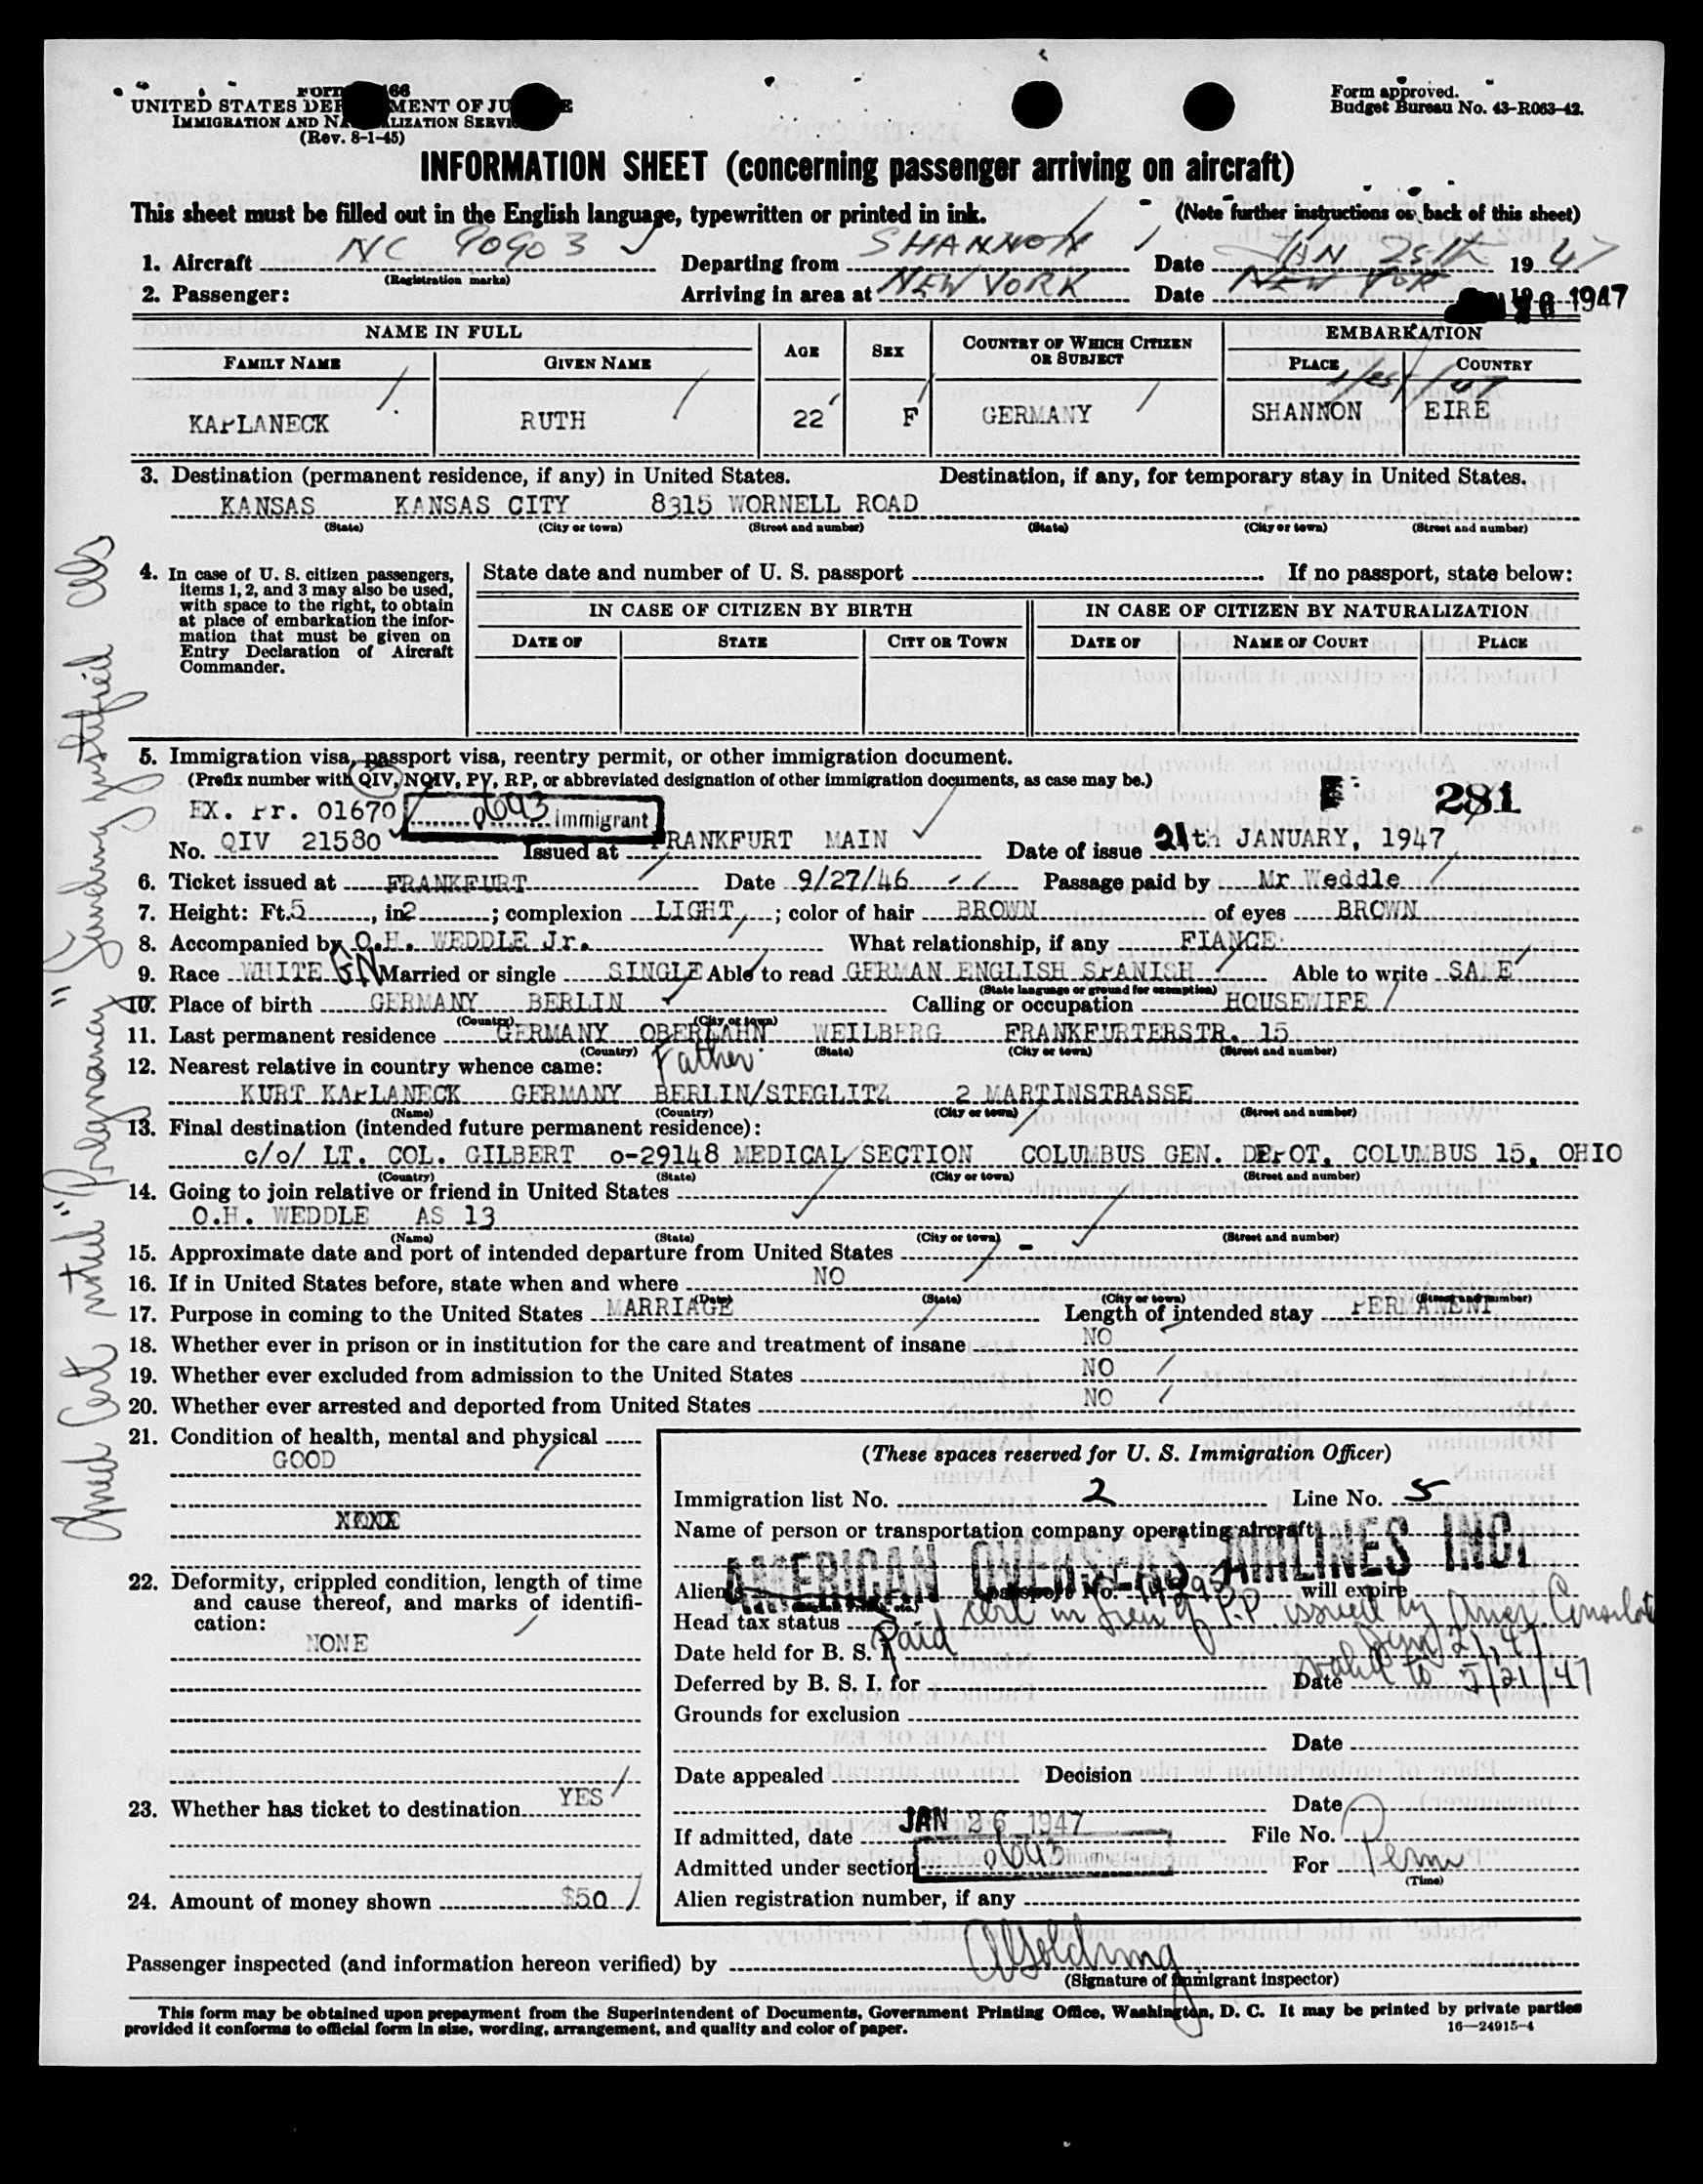 Form 66
UNITED STATES DEP MENT OF JU E
IMMIGRATION AND NA LIZATION SERVI
(Rev. 8-1-45)
Form approved.
Budget Bureau No. 43-R063-42.
INFORMATION SHEET (concerning passenger arriving on aircraft)
This sheet must be filled out in the English language, typewritten or printed in ink. (Note further instructions on back of this sheet)
1. Aircraft NC 90903 Departing from SHANNON Date JAN 25th 1947
(Registration marks)
2. Passenger: Arriving in area at NEW YORK Date NEW YOR 26 1947
NAME IN FULL AGE SEX COUNTRY OF WHICH CITIZEN OR SUBJECT EMBARKATION
FAMILY NAME GIVEN NAME PLACE COUNTRY
1/25/47
KAPLANECK RUTH 22 F GERMANY SHANNON EIRE
3. Destination (permanent residence, if any) in United States. Destination, if any, for temporary stay in United States.
KANSAS KANSAS CITY 8315 WORNELL ROAD
(State) (City or town) (Street and number) (State) (City or town) (Street and number)
4. In case of U. S. citizen passengers, items 1, 2, and 3 may also be used, with space to the right, to obtain at place of embarkation the information that must be given on Entry Declaration of Aircraft Commander.
State date and number of U. S. passport If no passport, state below:
IN CASE OF CITIZEN BY BIRTH IN CASE OF CITIZEN BY NATURALIZATION
DATE OF STATE CITY OR TOWN DATE OF NAME OF COURT PLACE
5. Immigration visa, passport visa, reentry permit, or other immigration document.
(Prefix number with QIV, NQIV, PV, RP, or abbreviated designation of other immigration documents, as case may be.)
EX. Pr. 01670 Immigrant 281
No. QIV 21580 Issued at FRANKFURT MAIN Date of issue 21th JANUARY, 1947
6. Ticket issued at FRANKFURT Date 9/27/46 Passage paid by Mr Weddle
7. Height: Ft. 5, in 2; complexion LIGHT; color of hair BROWN of eyes BROWN
8. Accompanied by O.H. WEDDLE Jr. What relationship, if any FIANCE
9. Race WHITE GN Married or single SINGLE Able to read GERMAN ENGLISH SPANISH Able to write SAME
(State language or ground for exemption)
10. Place of birth GERMANY BERLIN Calling or occupation HOUSEWIFE
(Country) (City or town)
11. Last permanent residence GERMANY OBERLAHN WEILBERG FRANKFURTERSTR. 15
(Country) (State) (City or town) (Street and number)
12. Nearest relative in country whence came: Father
KURT KAPLANECK GERMANY BERLIN/STEGLITZ 2 MARTINSTRASSE
(Name) (Country) (City or town) (Street and number)
13. Final destination (intended future permanent residence):
c/o/ LT. COL. GILBERT o-29148 MEDICAL SECTION COLUMBUS GEN. DEPOT. COLUMBUS 15, OHIO
(Country) (State) (City or town) (Street and number)
14. Going to join relative or friend in United States
O.H. WEDDLE AS 13
(Name) (State) (City or town) (Street and number)
15. Approximate date and port of intended departure from United States -
16. If in United States before, state when and where NO
(Date) (State) (City or town) (Street and number)
17. Purpose in coming to the United States MARRIAGE Length of intended stay PERMANENT
18. Whether ever in prison or in institution for the care and treatment of insane NO
19. Whether ever excluded from admission to the United States NO
20. Whether ever arrested and deported from United States NO
21. Condition of health, mental and physical
GOOD
22. Deformity, crippled condition, length of time and cause thereof, and marks of identification:
NONE
23. Whether has ticket to destination YES
24. Amount of money shown $50
(These spaces reserved for U. S. Immigration Officer)
Immigration list No. 2 Line No. 5
Name of person or transportation company operating aircraft
AMERICAN OVERSEAS AIRLINES INC.
Alien's passport No. will expire
Head tax status Paid cert in lieu of P.P issued by Amer Consulate
Jan 21, 47
Date held for B. S. I.
valid to 5/21/47
Deferred by B. S. I. for Date
Grounds for exclusion
Date
Date appealed Decision
Date
If admitted, date JAN 26 1947 File No.
Admitted under section For Perm
(Time)
Alien registration number, if any
Passenger inspected (and information hereon verified) by
(Signature of immigrant inspector)
This form may be obtained upon prepayment from the Superintendent of Documents, Government Printing Office, Washington, D. C. It may be printed by private parties
provided it conforms to official form in size, wording, arrangement, and quality and color of paper.
16—24915-4
Med Cert noted "Pregnancy"